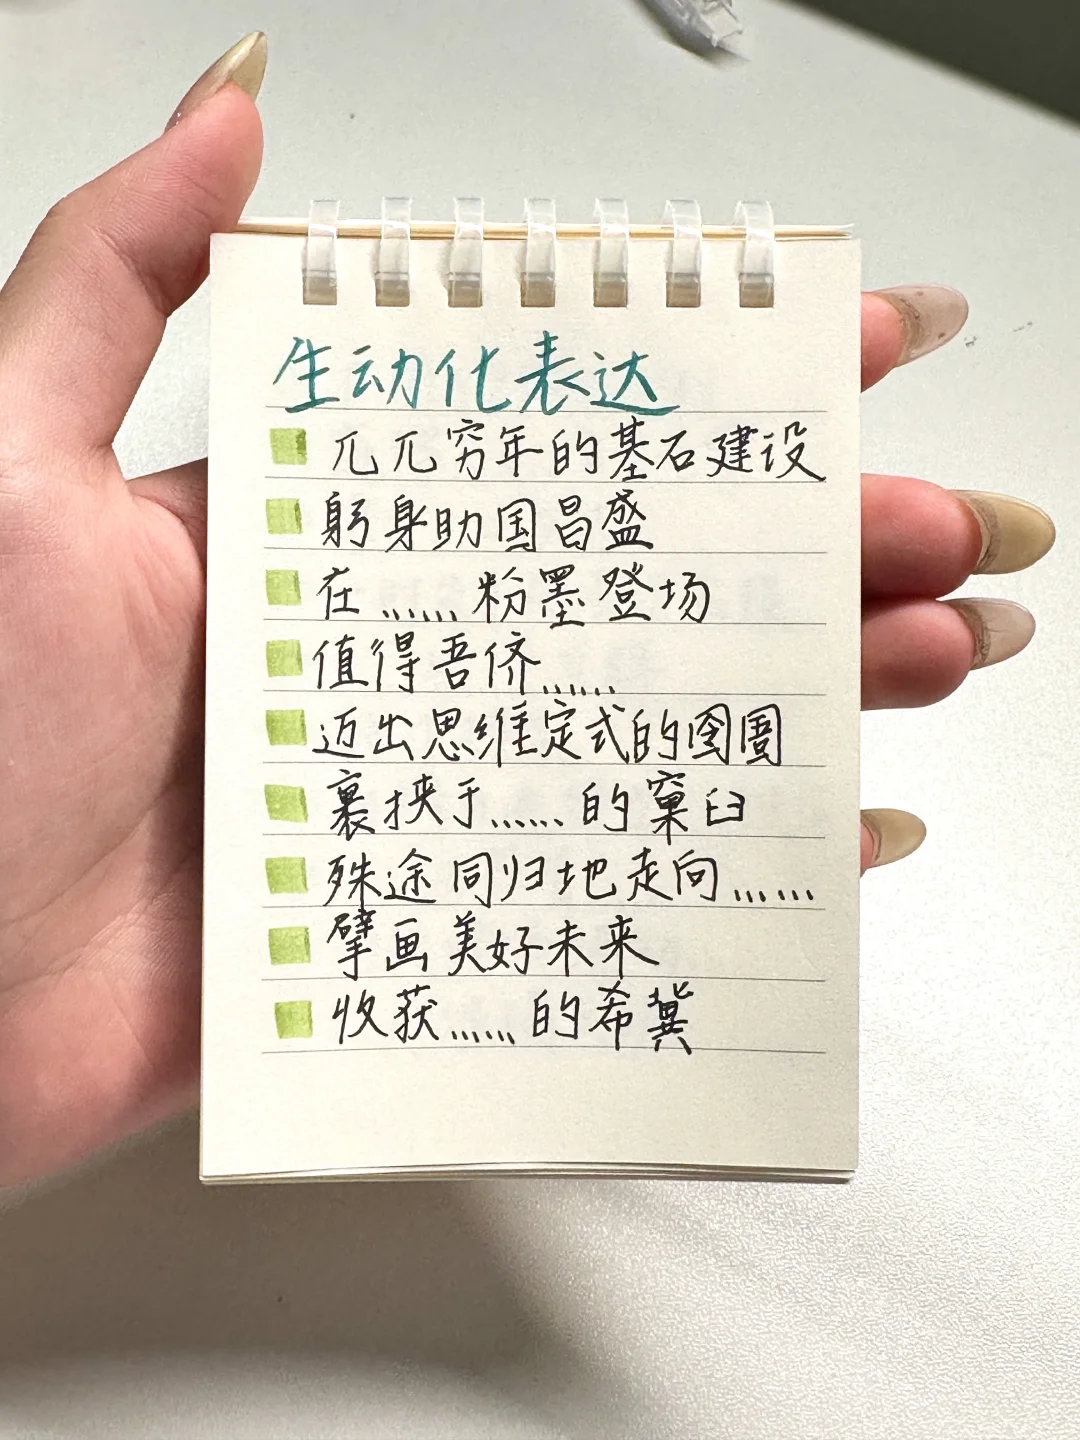 生动化表达
兀兀穷年的基石建设
躬身助国昌盛
在……粉墨登场
值得吾侪……
迈出思维定式的囹圄
裹挟于……的窠臼
殊途同归地走向……
擘画美好未来
收获……的希冀